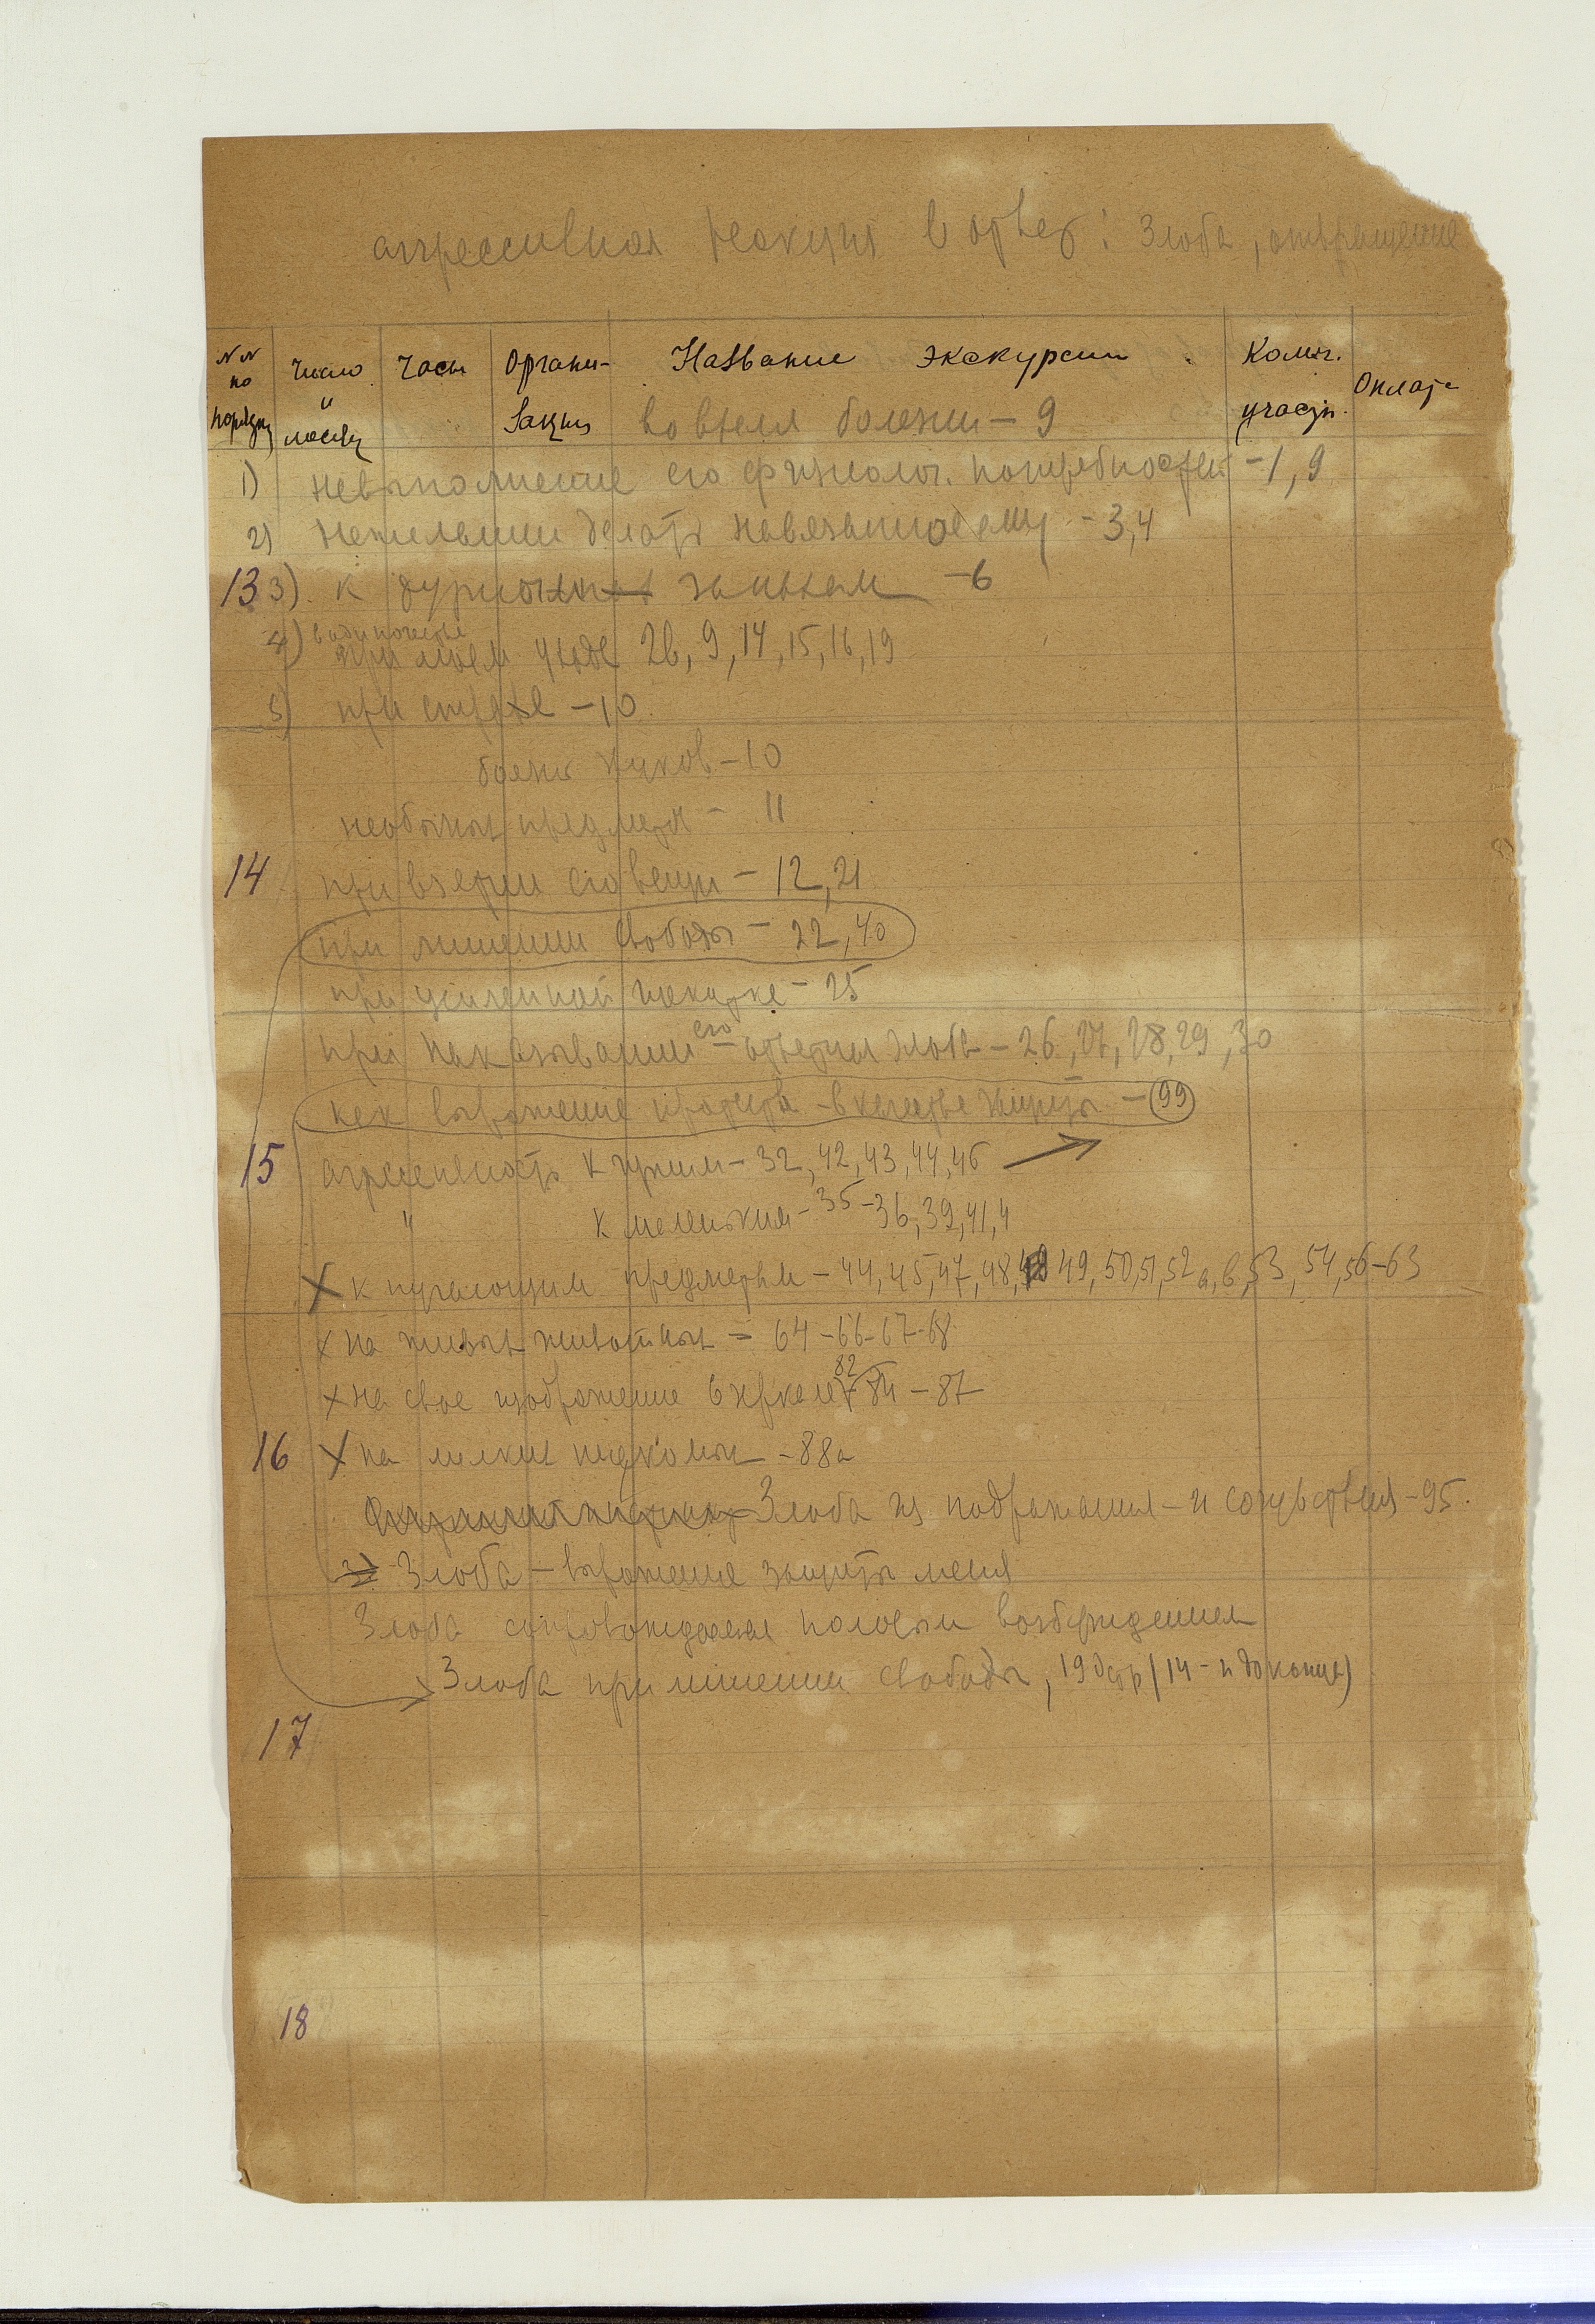 агрессивная реакция в ответ: Злоба, отвращение
NN по порядку
Число и месяц
Часы
Органи-зация
Название экскурсии
Колич. участн.
Оплата
во время болезни – 9
1) невыполнение его физиолог. потребностей – 1, 9
2) нежелании делать навязанное ему – 3, 4
13 3) к дурному запахам – 6
4) в одиночестве
при моем уходе 2в, 9, 14, 15, 16, 19
5) при страхе – 10
боязнь жуков – 10
необычных предмета – 11
14 при взятии его вещи – 12, 21
при лишении свободы – 22, 40
при усиленной щекотке – 25
при наказывании его – ответная злоба – 26, 27, 28, 29, 30
как выражение протеста – в качестве защиты – 99
15 агрессивность к чужим – 32, 42, 43, 44, 46
" к маленьким – 35 – 36, 39, 41, 4
X к пугающим предметам – 44, 45, 47, 48, 49, 50, 51, 52 а, в, 53, 54, 56–63
x на живых животных = 64 – 66 – 67 – 68
x на свое изображение в зеркале 82 84 – 87
16 X на мелких насекомых – 88а
Злоба из подражания – и сочувствия – 95.
Злоба – выражение защиты меня
Злоба сопровождаемая половым возбуждением
Злоба при лишении свободы, 19 стр (14 – и до конца)
17
18